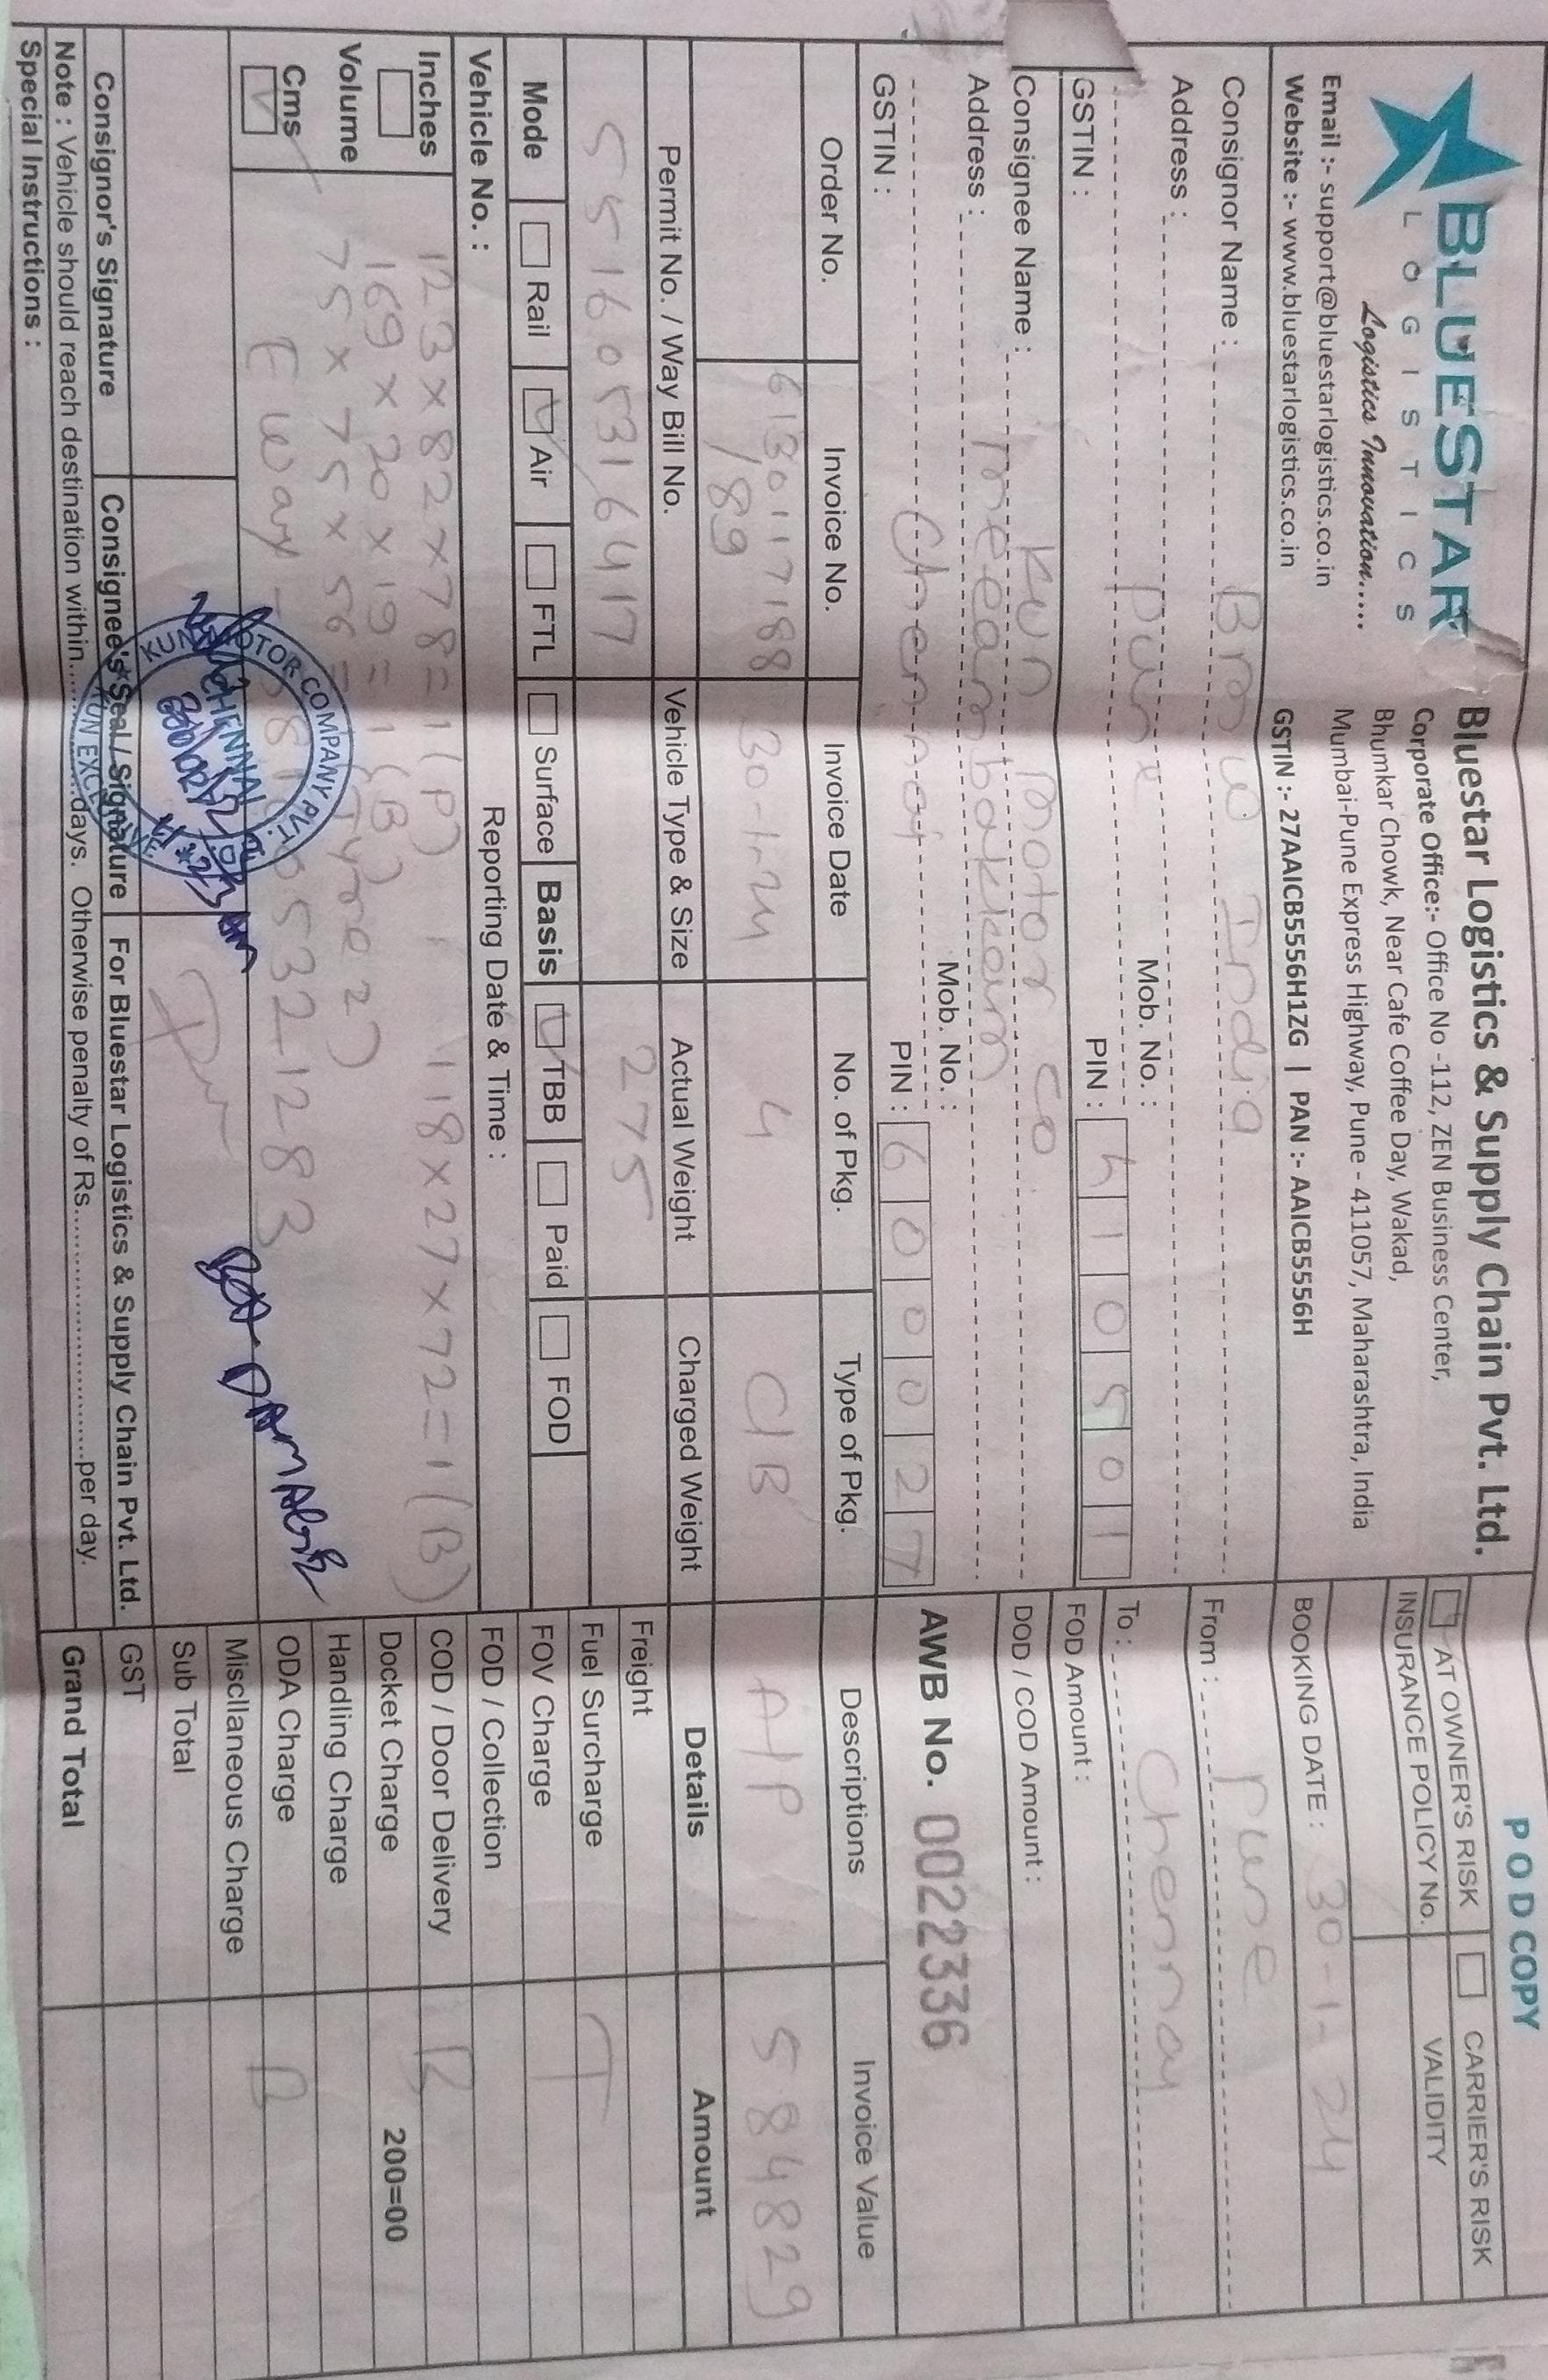 BLUESTAR
LOGISTICS
Logistics Innovation.....
Email :- support@bluestarlogistics.co.in
Website :- www.bluestarlogistics.co.in
Bluestar Logistics & Supply Chain Pvt. Ltd.
Corporate Office:- Office No -112, ZEN Business Center,
Bhumkar Chowk, Near Cafe Coffee Day, Wakad,
Mumbai-Pune Express Highway, Pune - 411057, Maharashtra, India
GSTIN :- 27AAICB5556H1ZG | PAN :- AAICB5556H
POD COPY
AT OWNER'S RISK CARRIER'S RISK
INSURANCE POLICY No. VALIDITY
BOOKING DATE : 30-1-24
Consignor Name : Bmw India
Address : Pune
Mob. No. :
GSTIN : PIN : 410501
From : Pune
To : Chennai
FOD Amount :
Consignee Name : Kun Motor Co
Address : Meeambakkam
Chennai
Mob. No. :
GSTIN : PIN : 600027
DOD / COD Amount :
AWB No. 00022336
Order No. Invoice No. Invoice Date No. of Pkg. Type of Pkg. Descriptions Invoice Value
6130117188 /89 30-1-24 4 C/B A/P 584829
Permit No. / Way Bill No. Vehicle Type & Size Actual Weight Charged Weight Details Amount
275
Mode Rail Air FTL Surface Basis TBB Paid FOD
Vehicle No. : Reporting Date & Time :
Inches
Volume
Cms
123 x 82 x 78 = 1 (P) 118 x 27 x 72 = 1 (B)
169 x 20 x 19 = 1 (B)
75 x 75 x 56 =
E way -
KUN MOTOR COMPANY PVT.
CHENNAI
KUN EXCLUSIVE
Freight
Fuel Surcharge
FOV Charge
FOD / Collection
COD / Door Delivery
Docket Charge 200=00
Handling Charge
ODA Charge
Miscllaneous Charge
Sub Total
GST
Grand Total
Consignor's Signature Consignee's Seal / Signature For Bluestar Logistics & Supply Chain Pvt. Ltd.
Note : Vehicle should reach destination within..........days. Otherwise penalty of Rs..............................per day.
Special Instructions :